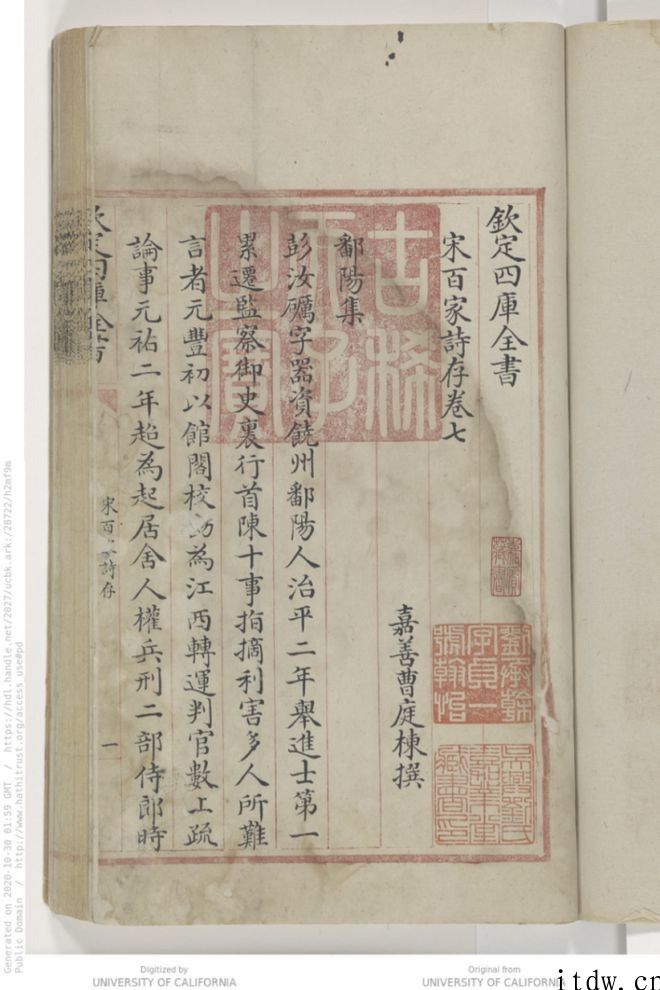 欽定四庫全書
宋百家詩存卷七
嘉善曹庭棟撰
鄱陽集
彭汝礪字器資饒州鄱陽人治平二年舉進士第一
累遷監察御史裏行首陳十事指摘利害多人所難
言者元豐初以館閣校為江西轉運判官數上疏
論事元祐二年起為起居舍人權兵刑二部侍郎時
宋百詩存
一
欽定四庫全書
古稀天子之寶
劉承幹字貞一號翰怡
吳興劉氏嘉業堂藏書印
Generated on 2020-10-30 01:59 GMT / https://hdl.handle.net/2027/ucbk.ark:/28722/h2mf9m
Public Domain / http://www.hathitrust.org/access_use#pd
Digitized by
UNIVERSITY OF CALIFORNIA
Original from
UNIVERSITY OF CALIFORNIA
itdw.cn